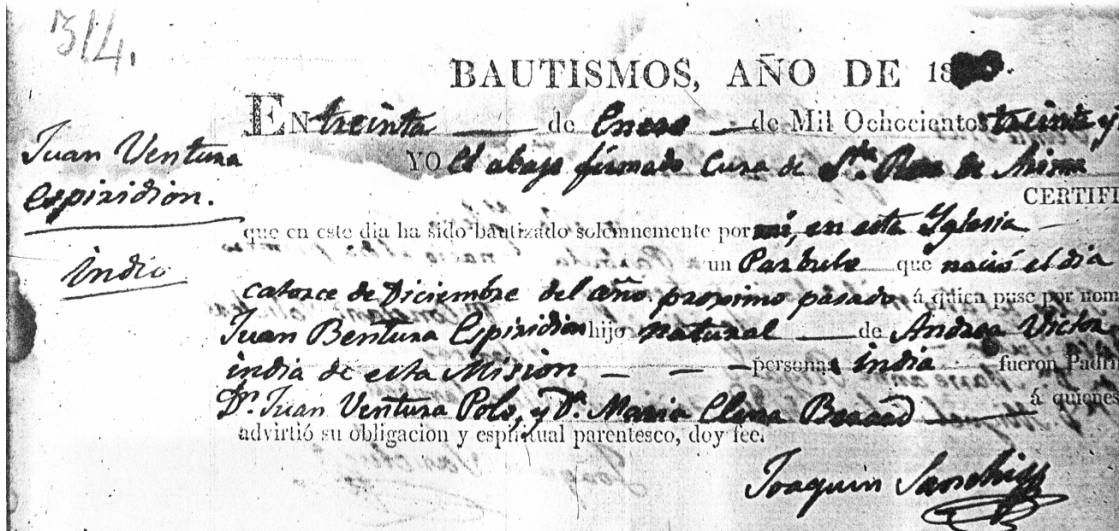 314.
BAUTISMOS, AÑO DE 18
EN treinta de Enero de Mil Ochocientos treinta y
Juan Ventura
Espiridion.
Indio
YO El abajo firmado Cura de Sta. Rosa de
CERTIFI
que en este dia ha sido bautizado solemnemente por mi, en esta Yglesia
un Parbulo que nació el dia
catorce de Diciembre del año proximo pasado á quien puse por nom
Juan Bentura Espiridion hijo natural de Andrea Victor
india de esta Mision personas india fueron Padri
Dn. Juan Ventura Polo, y Da. Maria Clara á quienes
advirtió su obligacion y espiritual parentesco, doy fee.
Joaquin Sanchiz